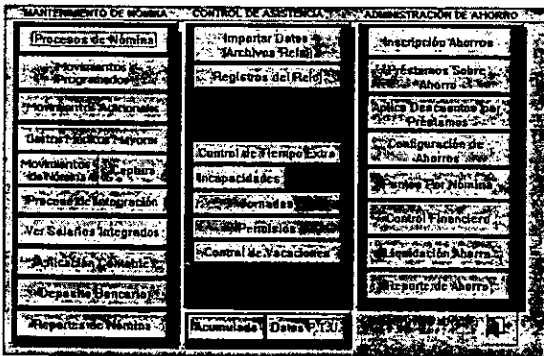 MANTENIMIENTO DE NÓMINA
CONTROL DE ASISTENCIA
ADMINISTRACIÓN DE AHORRO
Procesos de Nómina
Movimientos
Programados
Movimientos Adicionales
Movimientos
de Nómina
Captura
Proceso de Integración
Ver Salarios Integrados
Aplicación Contable
Deposito Bancario
Reportes de Nómina
Importar Datos
(Archivos Reloj)
Registros del Reloj
Control de Tiempo Extra
Incapacidades
Jornadas
Permisos
Control de Vacaciones
Acumulado
Datos P.T.U.
Inscripción Ahorros
Préstamos Sobre
Ahorro
Aplica Descuentos por
Préstamos
Configuración de
Ahorros
Puntos Por Nómina
Control Financiero
Liquidación Ahorro
Reporte de Ahorro